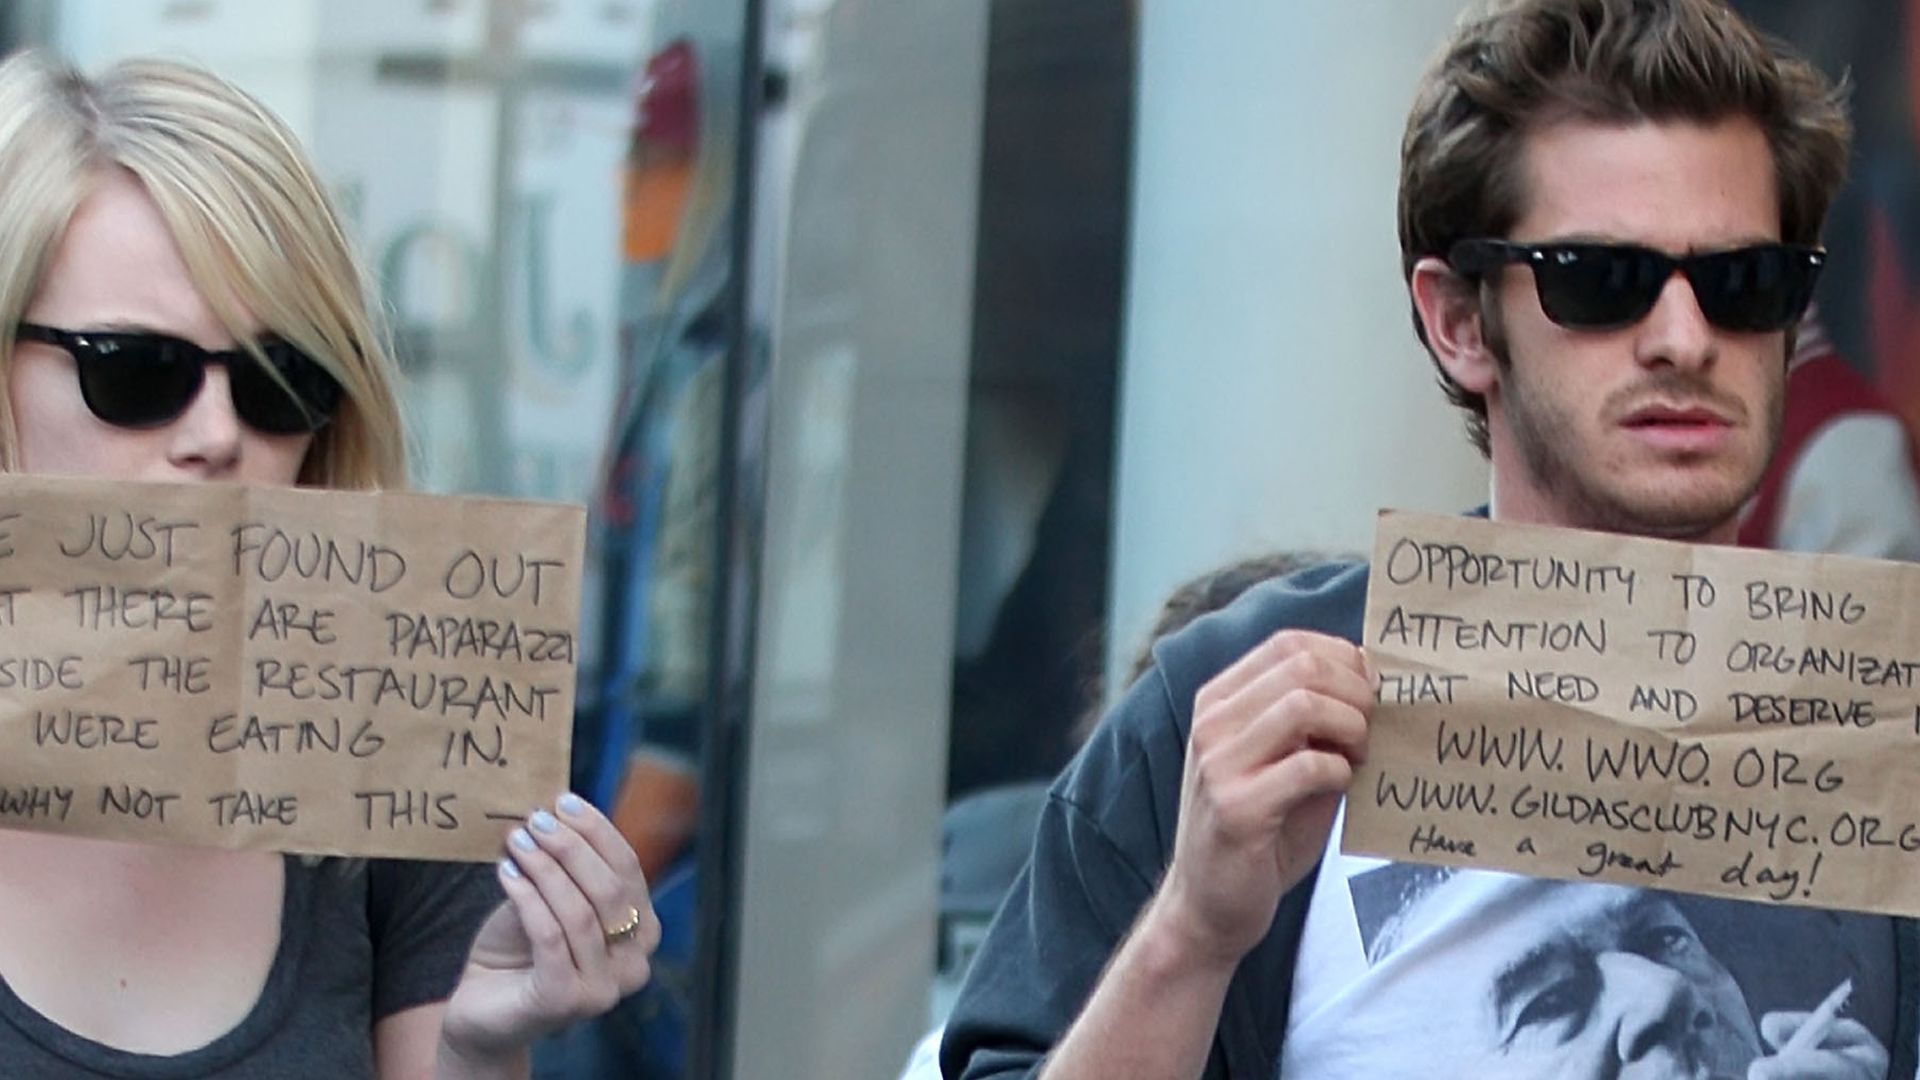 E JUST FOUND OUT
AT THERE ARE PAPARAZZI
SIDE THE RESTAURANT
WERE EATING IN.
WHY NOT TAKE THIS —
OPPORTUNITY TO BRING
ATTENTION TO ORGANIZAT
THAT NEED AND DESERVE I
WWW.WWO.ORG
WWW.GILDASCLUBNYC.ORG
Have a great day!